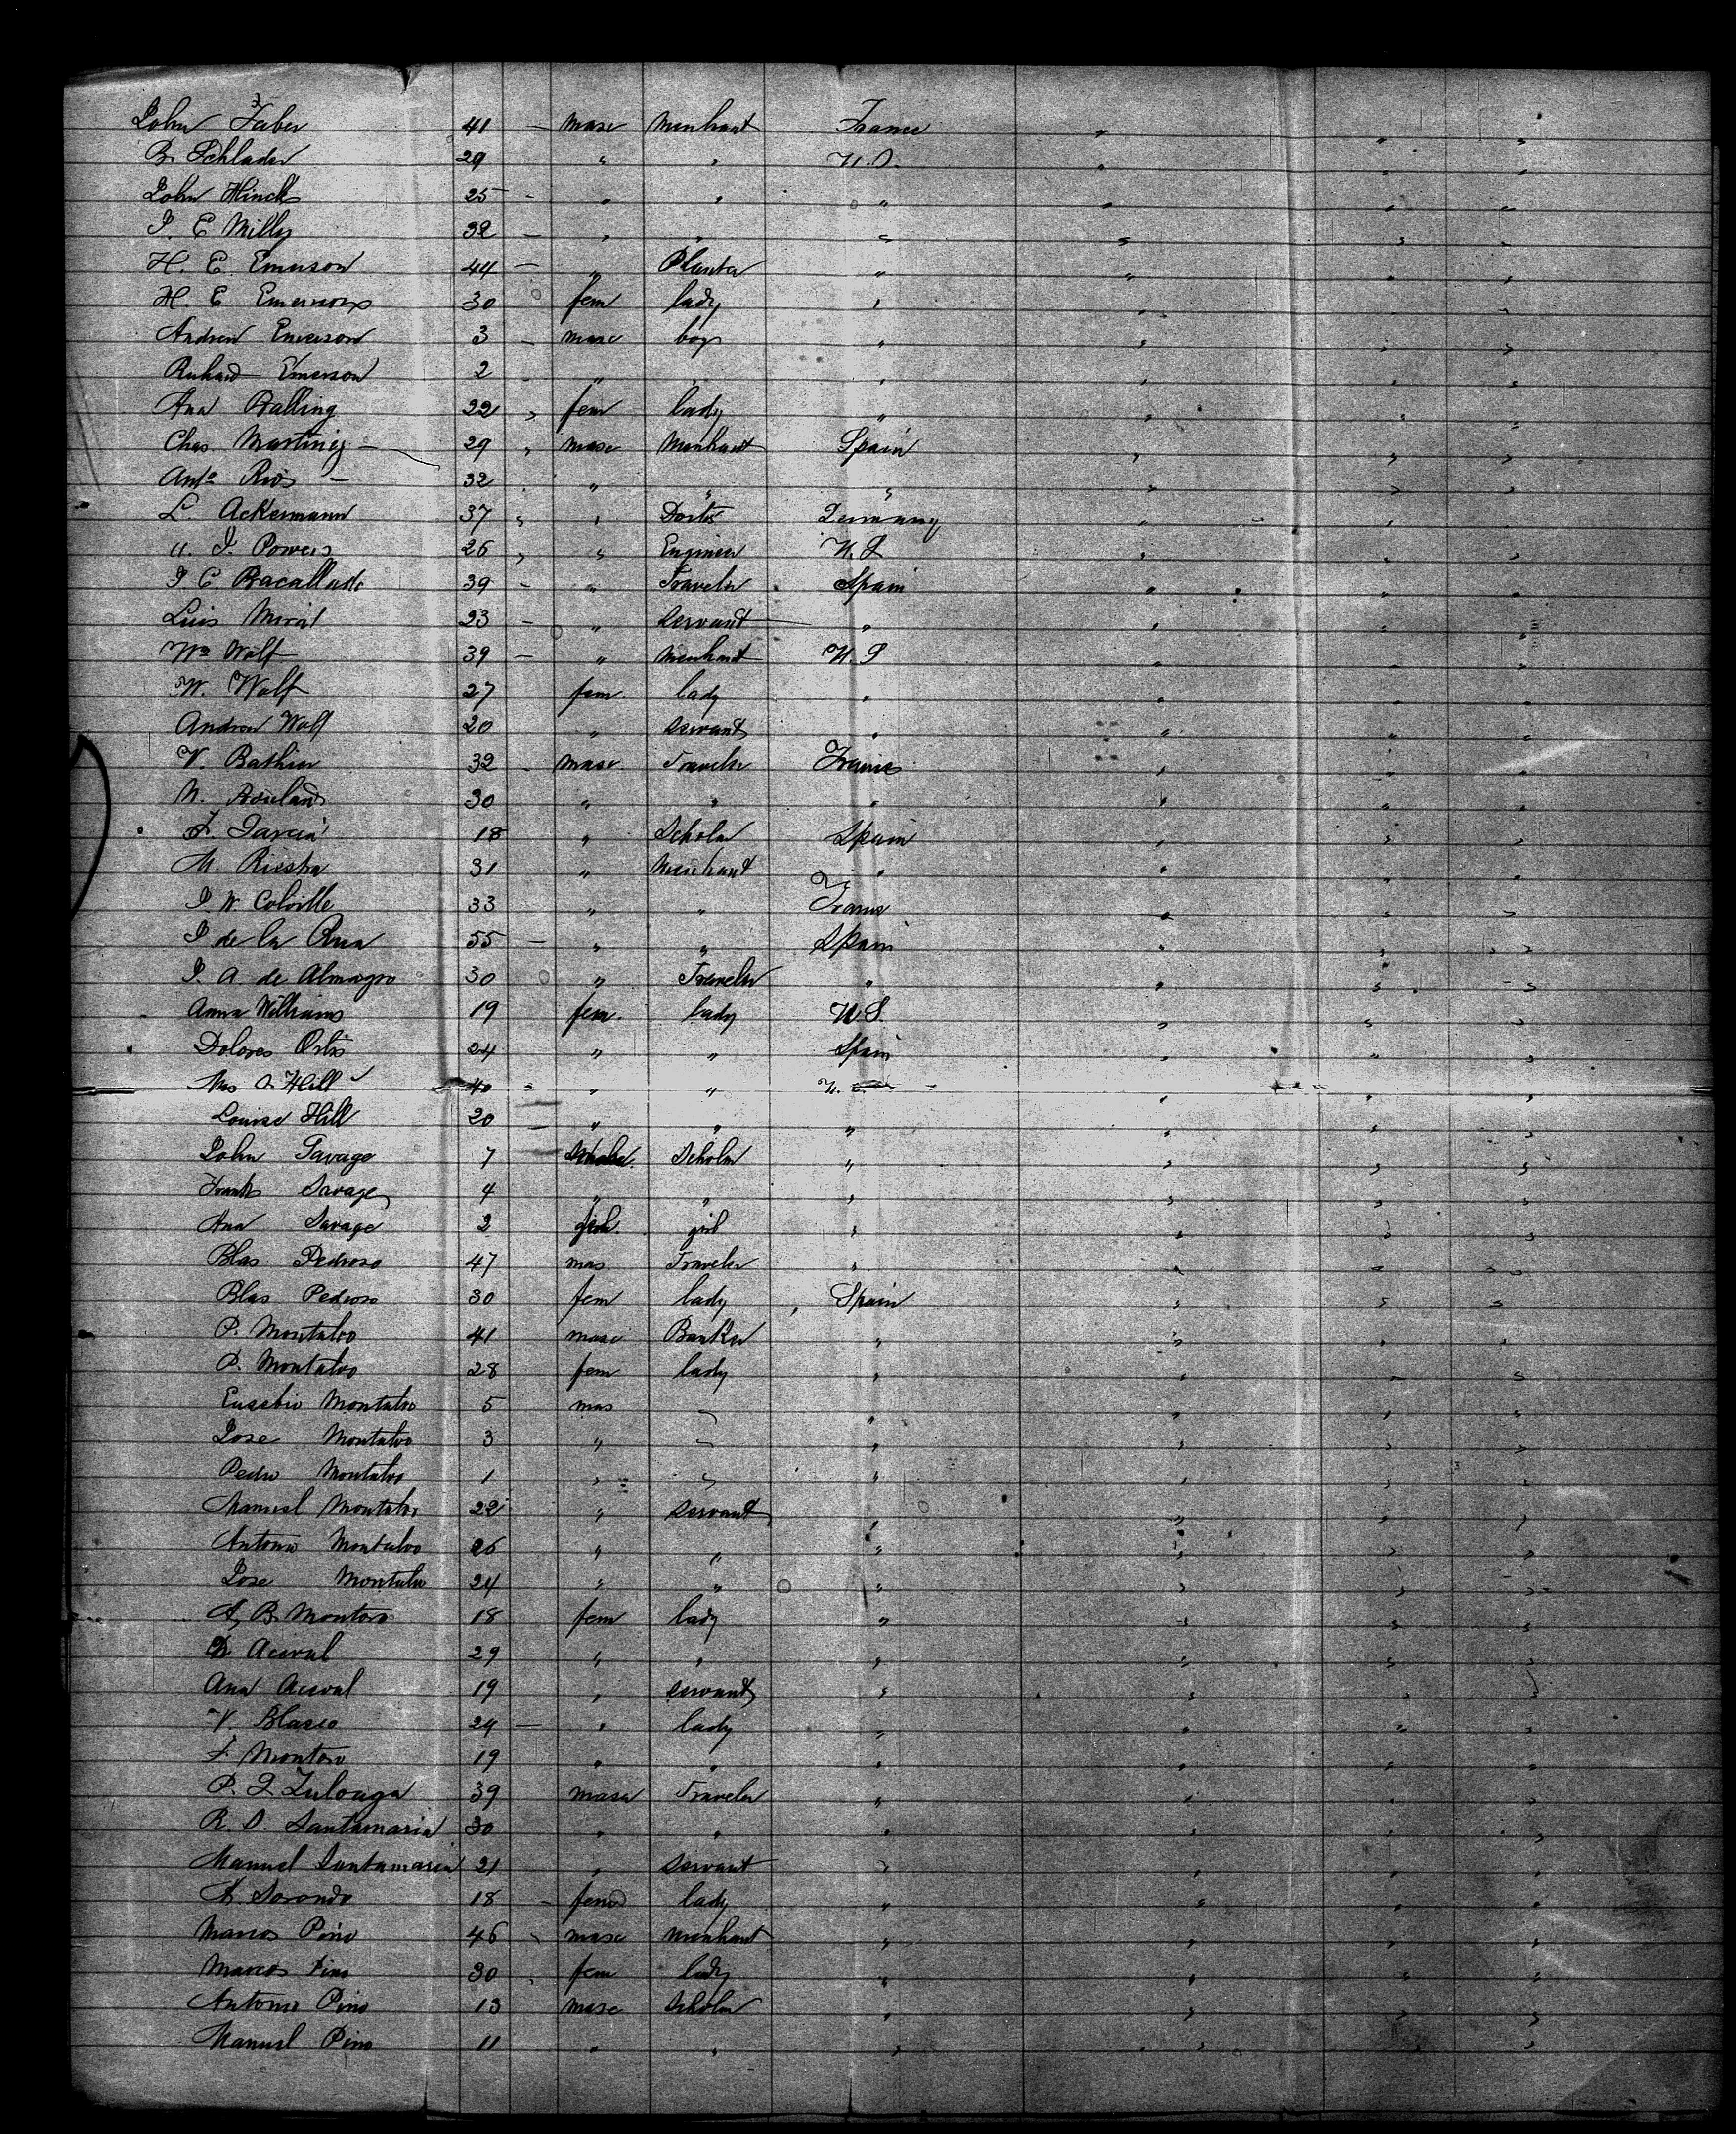 John Faber 41 - masc Merchant France " " "
B. Schlader 29 " " U.S. " " "
John Hinck 25 - " " " " " "
J. E Mills 32 - " " " " " "
H. E. Emerson 44 - " Planter " " " "
H. E Emerson 30 fem lady " " " "
Andrew Emerson 3 - masc boy " " " "
Richard Emerson 2 - " " " " " "
Ana Balling 22 " fem lady " " " "
Chas. Martinez - 29 " masc Merchant Spain " " "
Anto Rios - 32 " " " " " " "
L. Ackermann 37 " " Doctor Germany " " "
J. Powers 26 " " Engineer U.S " " "
J C. Bacallado 39 - " Traveler Spain " " "
Luis Miral 23 - " servant " " " "
Wm Wolf 39 - " Merchant U.S " " "
W. Wolf 27 fem. lady " " " "
Andrew Wolf 20 " servant " " " "
V. Bathier 32 - masc. Traveler France " " "
N. 30 " " " " " "
F. Garcia 18 " Scholar Spain " " "
M. Riestra 31 " Merchant " " " "
J W. Colville 33 " " France " " "
J de la Rua 55 - " " Spain " " "
J. A. de Almagro 30 " Traveler " " " "
Anna Williams 19 fem. lady U.S. " " "
Dolores Ortis 24 " " Spain " " "
Mrs S. Hill 40 " " " U. S. " " "
Louise Hill 20 - " " " " " "
John Savage 7 Scholar " " " "
Frank Savage 4 " " " " " "
Ana Savage 2 girl " " " "
Blas Pedroso 47 mas Traveler " " " "
Blas Pedroso 30 fem lady " Spain " " "
P. Montalvo 41 masc Banker " " " "
P. Montalvo 28 fem lady " " " "
Eusebio Montalvo 5 mas " " " " "
Jose Montalvo 3 " " " " " "
Pedro Montalvo 1 " " " " " "
Manuel Montalvo 22 " servant " " " "
Antonio Montalvo 26 " " " " " "
Jose Montalvo 24 " " " " " "
A, B. Montoro 18 fem lady " " " "
Aceval 29 " " " " " "
Ana Aceval 19 " servant " " " "
V. Blasco 24 - " lady " " " "
F. Montoro 19 " " " " " "
P. J. Zuloaga 39 masc Traveler " " " "
R. S. Santamaria 30 " " " " " "
Manuel Santamaria 21 " servant " " " "
A. Sorondo 18 - fem lady " " " "
Marcos Pino 46 - masc merchant " " " "
Marcos Pino 30 - fem lady " " " "
Antonio Pino 13 masc Scholar " " " "
Manuel Pino 11 " " " " " "